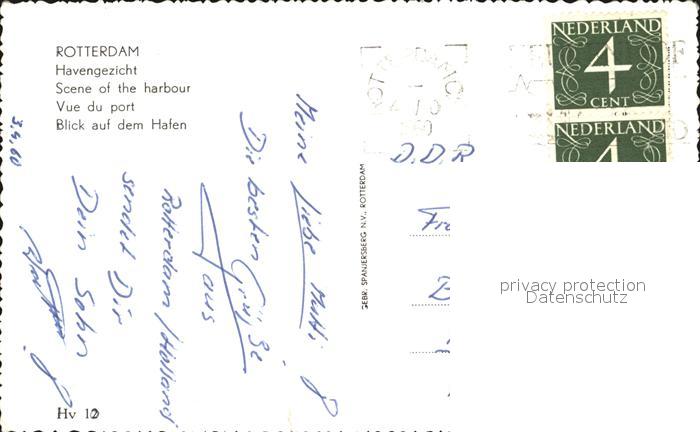 ROTTERDAM
Havengezicht
Scene of the harbour
Vue du port
Blick auf dem Hafen
3.4.60
Meine liebe Mutti!
Die besten Grüße
aus
Rotterdam/Holland
sendet Dir
Dein Sohn
Hv 12
GEBR. SPANJERSBERG N.V., ROTTERDAM
ROTTERDAM
NEDERLAND
4
CENT
NEDERLAND
4
D.D.R
privacy protection
Datenschutz